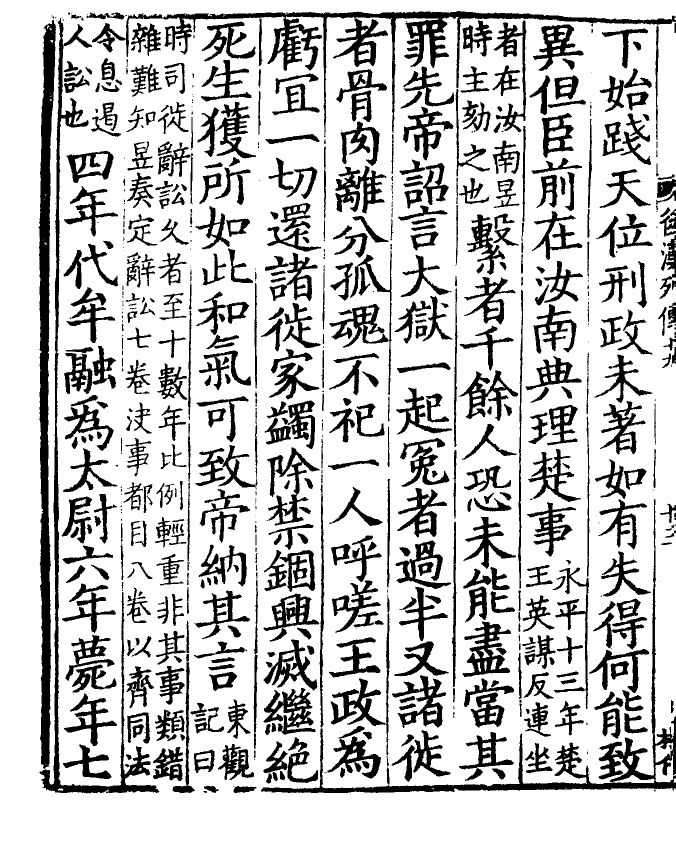 下始踐天位刑政未著如有失得何能致
異但臣前在汝南典理楚事永平十三年楚王英謀反連坐
者在汝南昱時主劾之也繫者千餘人恐未能盡當其
罪先帝詔言大獄一起冤者過半又諸徙
者骨肉離分孤魂不祀一人呼嗟王政爲
虧宜一切還諸徙家蠲除禁錮興滅繼絶
死生獲所如此和氣可致帝納其言東觀記曰
時司徒辭訟久者至十數年比例輕重非其事類錯雜難知昱奏定辭訟七卷決事都目八卷以齊同法
令息遏人訟也四年代牟融爲太尉六年薨年七